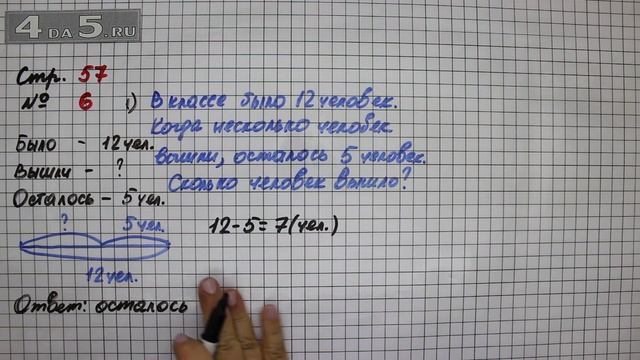 4 DA 5.RU
Стр. 57
№ 6 1) В классе было 12 человек.
Когда несколько человек
вышли, осталось 5 человек.
Сколько человек вышло?
Было - 12 чел.
Вышли - ?
Осталось - 5 чел.
? 5 чел.
12 чел.
12-5=7(чел.)
Ответ: осталось